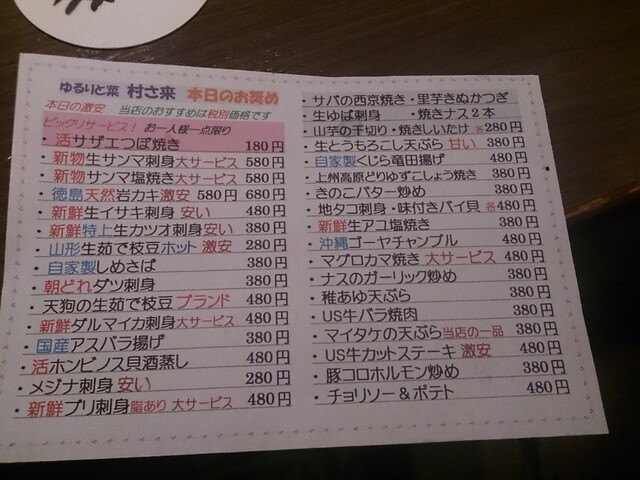 ゆるりと菜 村さ来 本日のお奨め
本日の激安 当店のおすすめは税別価格です
ビックリサービス！ お一人様一点限り
・活サザエつぼ焼き 180円
・新物生サンマ刺身大サービス 580円
・新物サンマ塩焼き大サービス 580円
・徳島天然岩カキ激安 580円 680円
・新鮮生イサキ刺身 安い 480円
・新鮮特上生カツオ刺身安い 380円
・山形生茹で枝豆ホット 激安 280円
・自家製しめさば 380円
・朝どれダツ刺身 380円
・天狗の生茹で枝豆ブランド 480円
・新鮮ダルマイカ刺身大サービス 480円
・国産アスパラ揚げ 380円
・活ホンビノス貝酒蒸し 480円
・メジナ刺身 安い 280円
・新鮮ブリ刺身脂あり 大サービス 480円
・サバの西京焼き・里芋きぬかつぎ
・生ゆば刺身 ・焼きナス２本
・山芋の千切り・焼きしいたけ 各280円
・生とうもろこし天ぷら 甘い 380円
・自家製くじら竜田揚げ 480円
・上州高原どりゆずこしょう焼き 380円
・きのこバター炒め 380円
・地タコ刺身・味付きバイ貝 各480円
・新鮮生アユ塩焼き 380円
・沖縄ゴーヤチャンプル 480円
・マグロカマ焼き 大サービス 480円
・ナスのガーリック炒め 380円
・稚あゆ天ぷら 380円
・US牛バラ焼肉 380円
・マイタケの天ぷら当店の一品 380円
・US牛カットステーキ 激安 480円
・豚コロホルモン炒め 380円
・チョリソー＆ポテト 480円